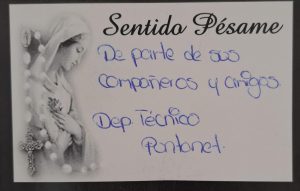 Sentido Pésame
De parte de sus
compañeros y amigos.
Dep. Técnico
Pantanet.